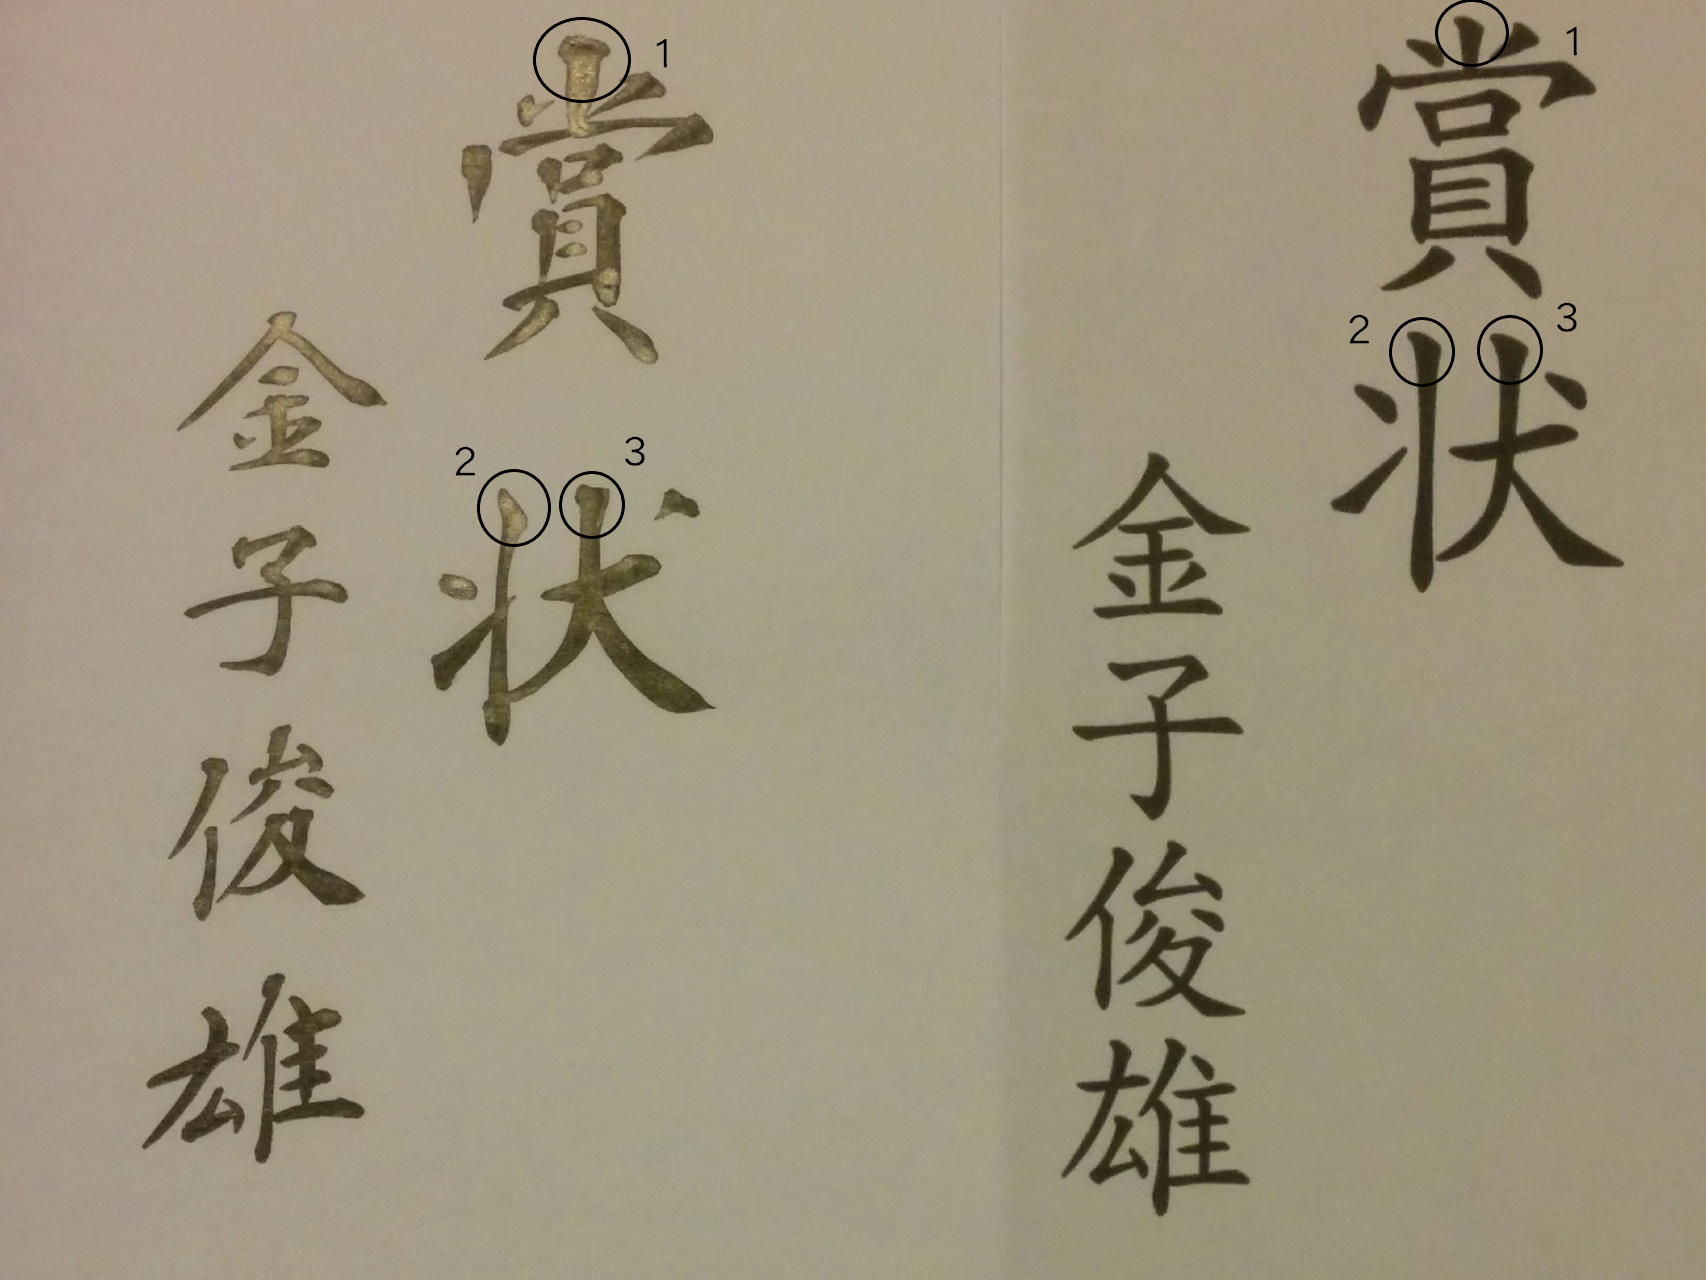 賞状
金子俊雄
1
2
3
賞状
金子俊雄
1
2
3